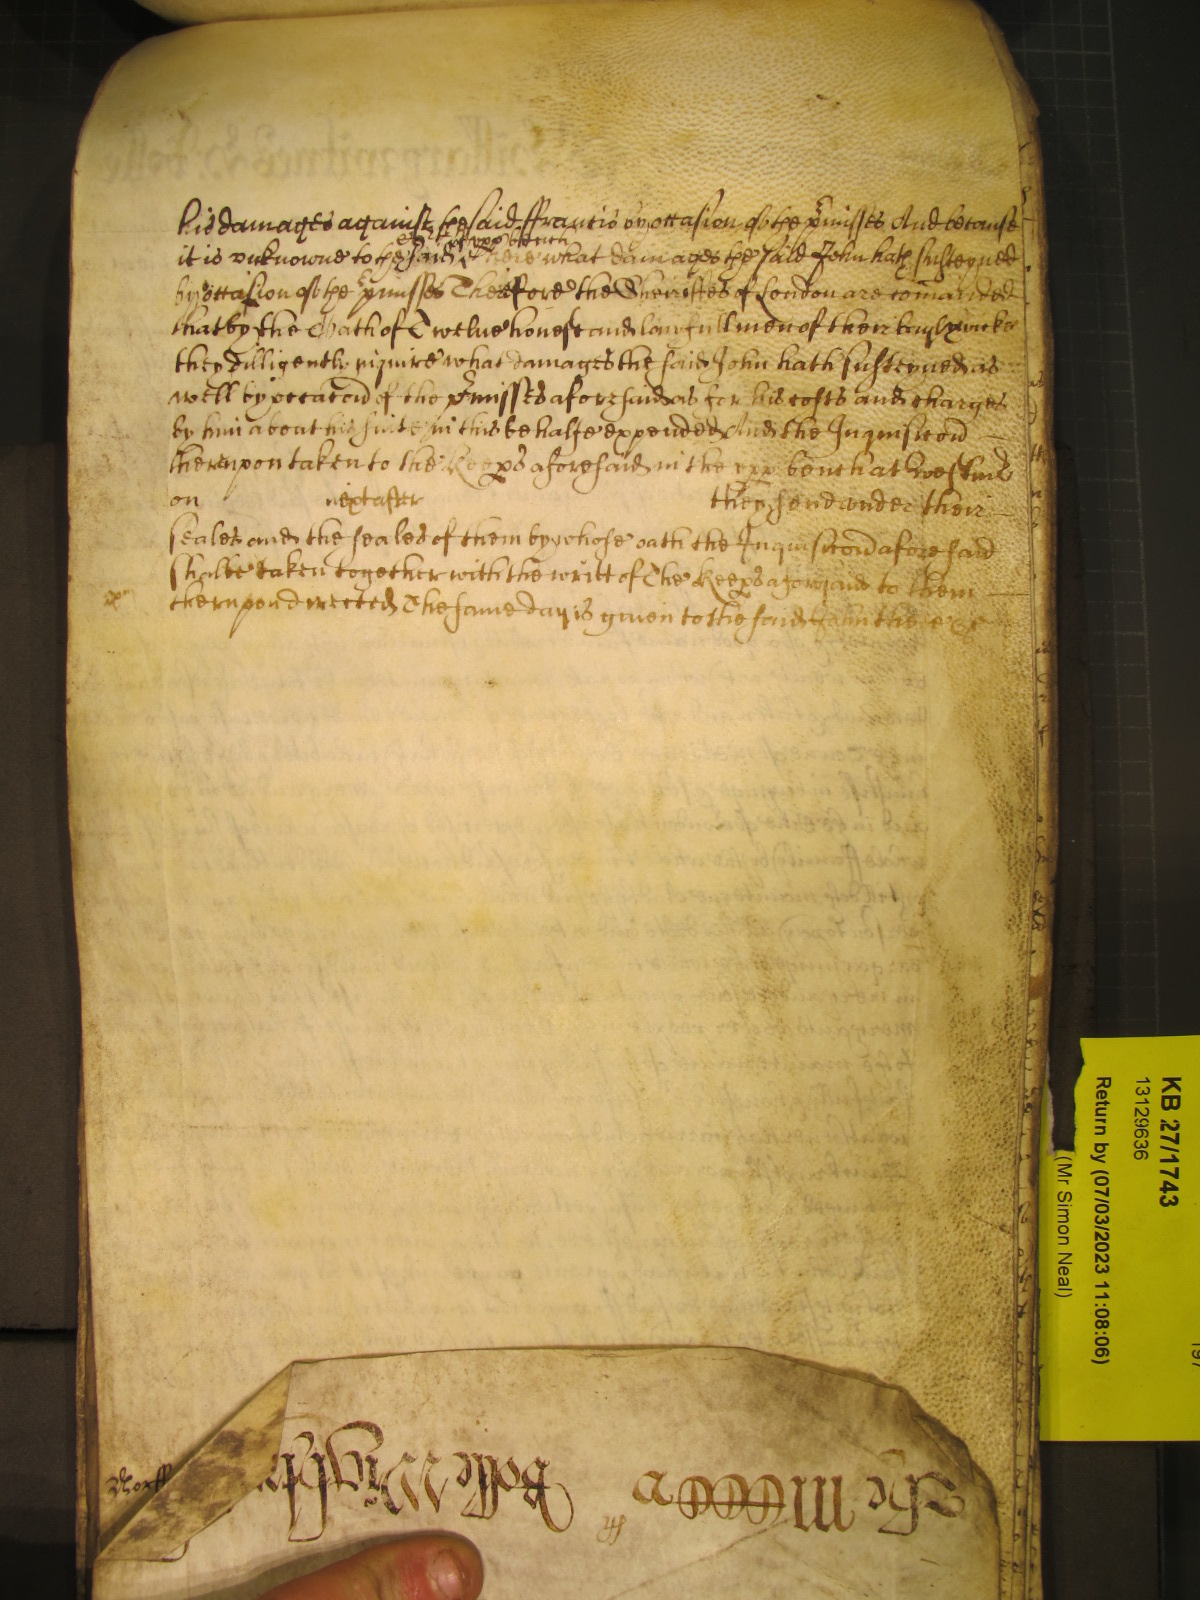 his damages against the said ffrancis by occasion of the p'misses And because
of the upp bench
it is unknowne to the said Keep's here what damages the said John hath susteyned
by occasion of the p'misses Therefore the Sheriffes of London are comanded
that by the Oath of Twelve honest and lawfull men of their baylywicke
they dilligently inquire what damages the said John hath susteyned as
well by occacon of the p'misses aforesaid as for his costs and charges
by him about his suite in this behalfe expended And the Inquisicon
thereupon taken to the Keep's aforesaid in the upp bench at Westm'
on next after they send under their
seales and the seales of them by whose oath the Inquisicon aforesaid
shalbe taken together with the writt of The Keep's aforesaid to them
thereupon directed The same day is given to the said John there &c
Norff
The Rolle Wight
KB 27/1743
13129636
Return by (07/03/2023 11:08:06)
(Mr Simon Neal)
197